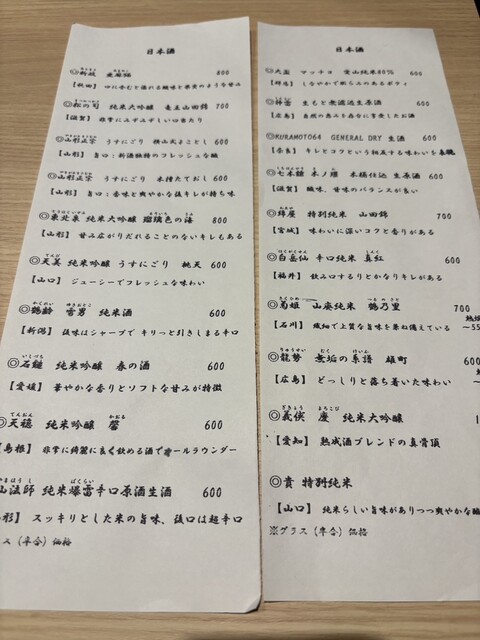 日本酒
◎新政 亜麻猫 800
【秋田】 口に含むと溢れる酸味と果実のような甘み
◎松の司 純米大吟醸 竜王山田錦 700
【滋賀】 非常にスムーズしい口当たり
◎山形正宗 うすにごり 横山式まこと 600
【山形】 旨口:新酒独特のフレッシュな酸
◎山形正宗 うすにごり 木槽たておし 600
【山形】 旨口:香味と爽やかな後キレが持ち味
◎東北泉 純米大吟醸 瑠璃色の海 800
【山形】 甘み広がりだれることのないキレもある
◎天美 純米吟醸 うすにごり 桃天 600
【山口】 ジューシーでフレッシュな味わい
◎鶴齢 雪男 純米酒 600
【新潟】 後味はシャープで キリっと引きしまる辛口
◎石鎚 純米吟醸 春の酒 600
【愛媛】 華やかな香りとソフトな甘みが特徴
◎天穏 純米吟醸 馨 600
【島根】 非常に綺麗に良く飲める酒でオールラウンダー
山法師 純米爆雷辛口原酒生酒 600
形】 スッキリとした米の旨味、後口は超辛口
ス(半合)価格
日本酒
◎大盃 マッチョ 生山純米80% 600
【群馬】 しなやかで優しふくらみのあるボディ
◎神雷 生もと無濾過生原酒 600
【広島】
◎KURAMOTO64 GENERAL DRY 生酒 600
【奈良】 キレとコクという相反する味わいを表現
◎七本鎗 木ノ環 木桶仕込 生原酒 600
【滋賀】 酸味、甘味のバランスが良い
◎綿屋 特別純米 山田錦 700
【宮城】 味わいに深いコクと香りがある
◎白岳仙 辛口純米 真紅 600
【福井】 飲み口するりとかなりキレがある
◎菊姫 山廃純米 鶴乃里 700
【石川】 繊細で上質な旨味を兼ね備えている ～55
◎龍勢 無垢の系譜 雄町 600
【広島】 どっしりと落ち着いた味わい
◎義侠 慶 純米大吟醸 1
【愛知】 熟成酒ブレンドの真骨頂
◎貴 特別純米
【山口】 純米らしい旨味がありつつ爽やかな酸
※グラス(半合)価格